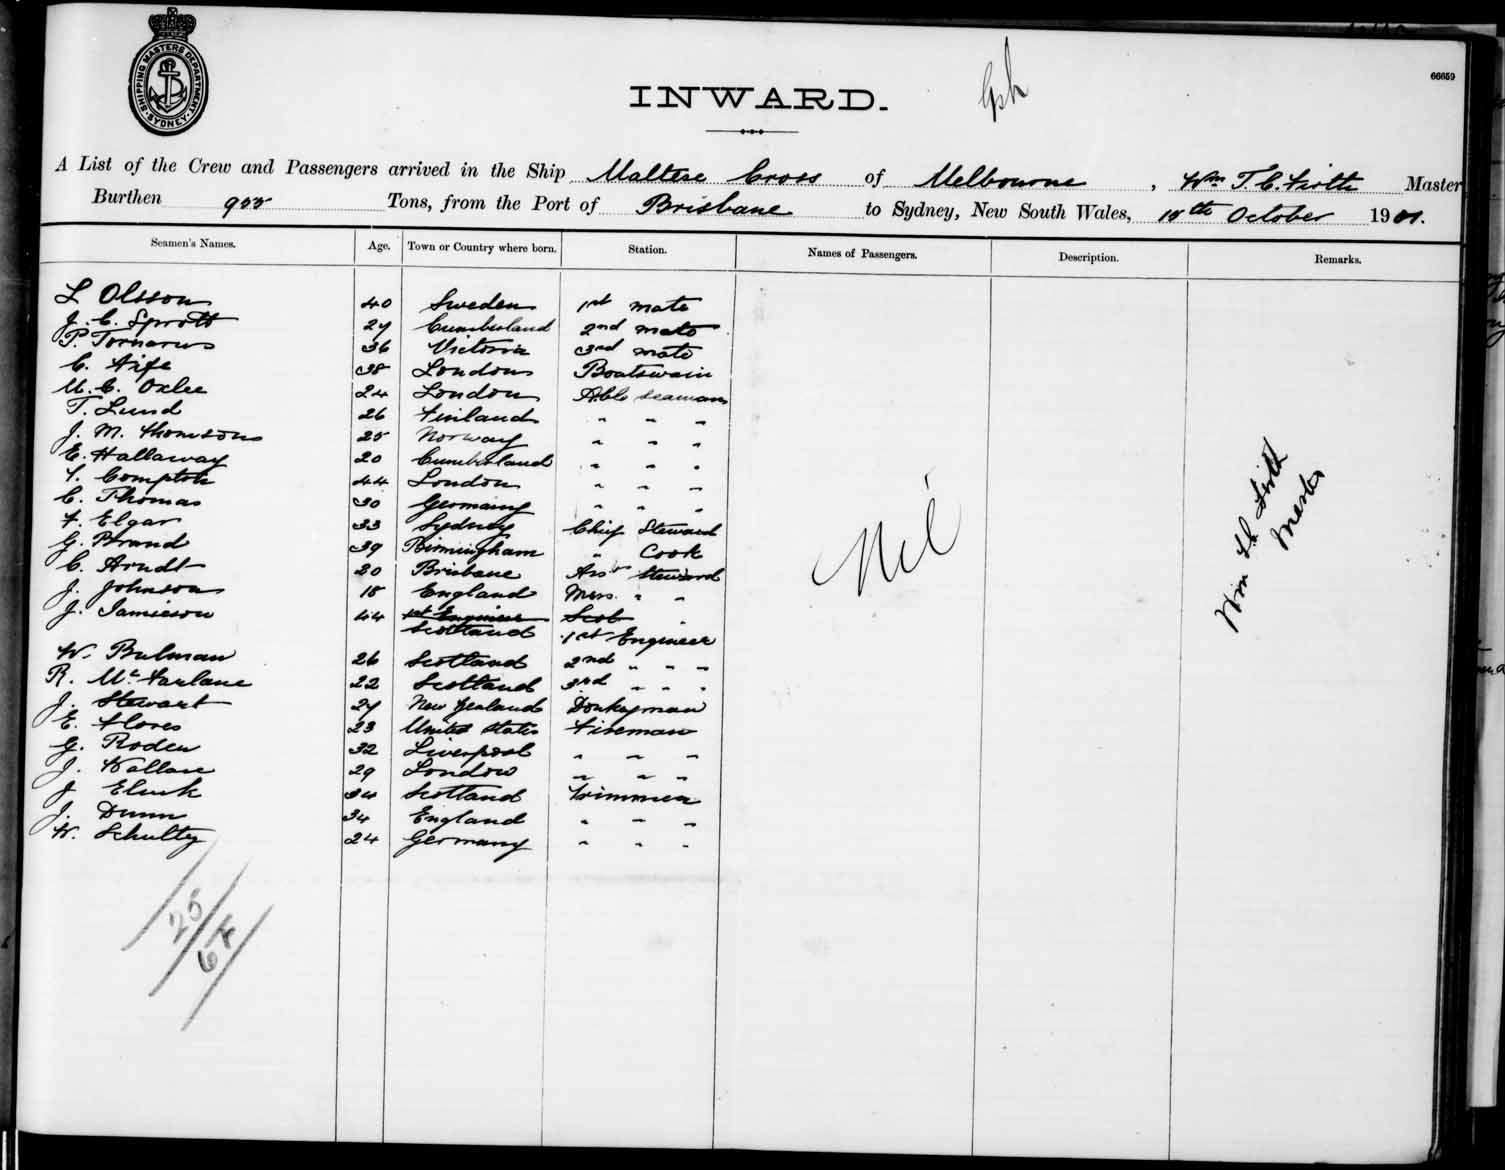 SHIPPING MASTERS DEPARTMENT SYDNEY
66659
INWARD.
A List of the Crew and Passengers arrived in the Ship Maltese Cross of Melbourne, Wm T. C. Firth Master
Burthen Tons, from the Port of Brisbane to Sydney, New South Wales, October 1901.
Seamen's Names. Age. Town or Country where born. Station. Names of Passengers. Description. Remarks.
L Olsson 40 Sweden 1st mate
J. C. Sprott 27 Cumberland 2nd mate
P. Tornarus 36 Victoria 3rd mate
C. Fife 38 London Boatswain
M. C. Oxlee 24 London Able seaman
T. Lund 26 Finland " " "
J. M. Thomsons 25 Norway " " "
E. Hallaway 20 Cumberland " " "
F. Compton 44 London " " "
C. Thomas 30 Germany " " "
F. Elgar 33 Sydney Chief Steward
G. Brand 39 Birmingham " Cook
C. Arndt 20 Brisbane Ass Steward
J. Johnson 18 England Mess. " "
J. Jamieson 44 1st Engineer Scot
Scotland 1st Engineer
W. Bulman 26 Scotland 2nd " " "
R. McFarlane 22 Scotland 3rd " " "
J. Stewart 27 New Zealand Donkeyman
E. Flores 23 United States Fireman
G. Roden 32 Liverpool " " "
J. Wallace 29 London " " "
J 34 Scotland Trimmer
J. Dunn 34 England " " "
W. Schulty 24 Germany " " "
Nil
Wm Firth
Master
25
64